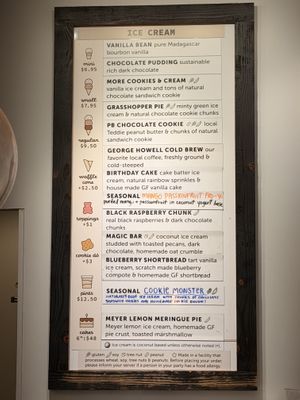 ICE CREAM
VANILLA BEAN pure Madagascar
bourbon vanilla
mini
$6.95
CHOCOLATE PUDDING sustainable
rich dark chocolate
MORE COOKIES & CREAM
vanilla ice cream and tons of natural
chocolate sandwich cookie
small
$7.95
GRASSHOPPER PIE minty green ice
cream & natural chocolate cookie chunks
PB CHOCOLATE COOKIE local
Teddie peanut butter & chunks of natural
sandwich cookie
regular
$9.50
GEORGE HOWELL COLD BREW our
favorite local coffee, freshly ground &
cold-steeped
BIRTHDAY CAKE cake batter ice
cream, natural rainbow sprinkles &
house made GF vanilla cake
waffle
cone
+$2.50
SEASONAL MANGO PASSIONFRUIT FRO-YO
pureed mango + passionfruit in coconut yogurt base
BLACK RASPBERRY CHUNK
real black raspberries & dark chocolate
chunks
toppings
+$1
MAGIC BAR coconut ice cream
studded with toasted pecans, dark
chocolate, homemade oat crumble
cookie dō
+$3
BLUEBERRY SHORTBREAD tart vanilla
ice cream, scratch made blueberry
compote & homemade GF shortbread
SEASONAL COOKIE MONSTER
pints
$12.50
MEYER LEMON MERINGUE PIE
Meyer lemon ice cream, homemade GF
pie crust, toasted marshmallow
cakes
6":$48
Ice cream is coconut based unless otherwise noted
gluten soy tree nut peanut Made in a facility that
processes wheat, soy, tree nuts & peanuts. Before placing your order,
please inform your server if a person in your party has a food allergy.